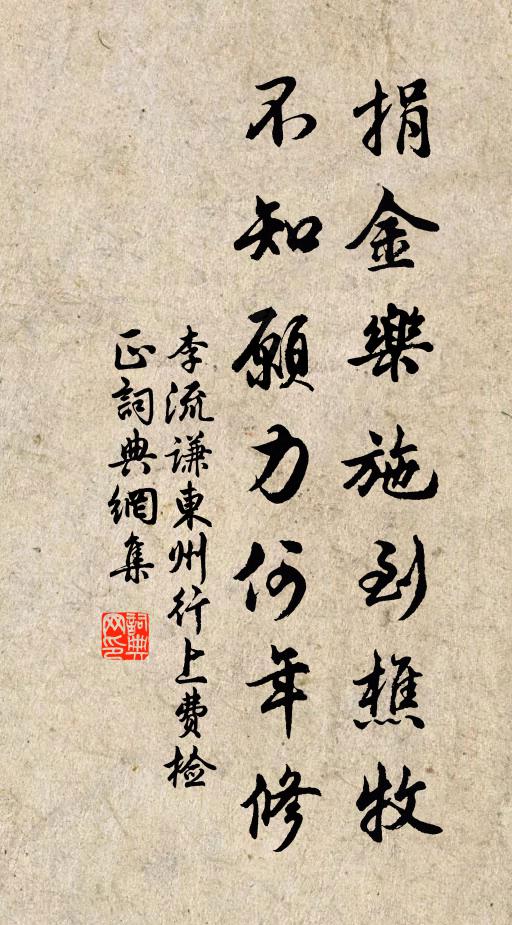 捐金樂施到樵牧
不知願力何年修
李流谦東州行上费檢
正詞典網集
詞典
网印